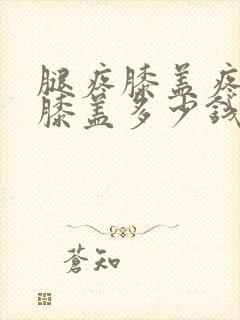 腿疼膝盖疼
膝盖多少钱
蒼知